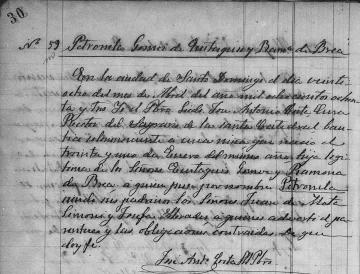 30
Nº 59 Petronila Gomez de Eustaquio y Ramª de Brea
En la ciudad de Santo Domingo el dia veinte
ocho del mes de Abril del año mil ochocientos ochenta
y tres Yo el Pbro Licdo Jose Antonio Cura
Rector del Sagrario de la Santa Catedral
solemnemente a una niña que nacio el
treinta y uno de Enero del mismo año hija legi
tima de los Señores Eustaquio Gomez y Ramona
de Brea a quien puse por nombre Petronila
siendo sus padrinos los Señores Juan de Mata
y Josefa a quienes adverti el pa
rentesco y las obligaciones contraidas de que
doy fe
Jose Antº Pbro